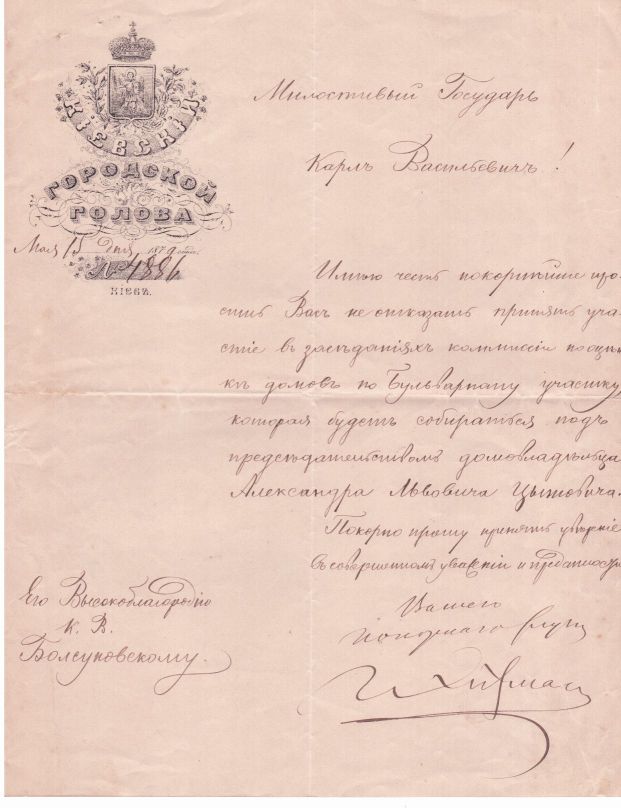 КІЕВСКІЙ
ГОРОДСКОЙ
ГОЛОВА
Мая 15 дня 1879 года
№ 4886
КІЕВЪ.
Милостивый Государь
Карлъ Васильевичъ!
Имѣю честь покорнѣйше про-
сить Васъ не отказать принять уча-
стіе въ засѣданіяхъ коммиссіи по оцѣн-
кѣ домовъ по Бульварному участку,
которая будетъ собираться подъ
предсѣдательствомъ домовладѣльца
Александра Львовича Цытовича.
Покорно прошу принять увѣреніе
въ совершенномъ уваженіи и преданности
Вашего
покорнаго слуги
Его Высокоблагородію
К. В.
Болсуновскому.